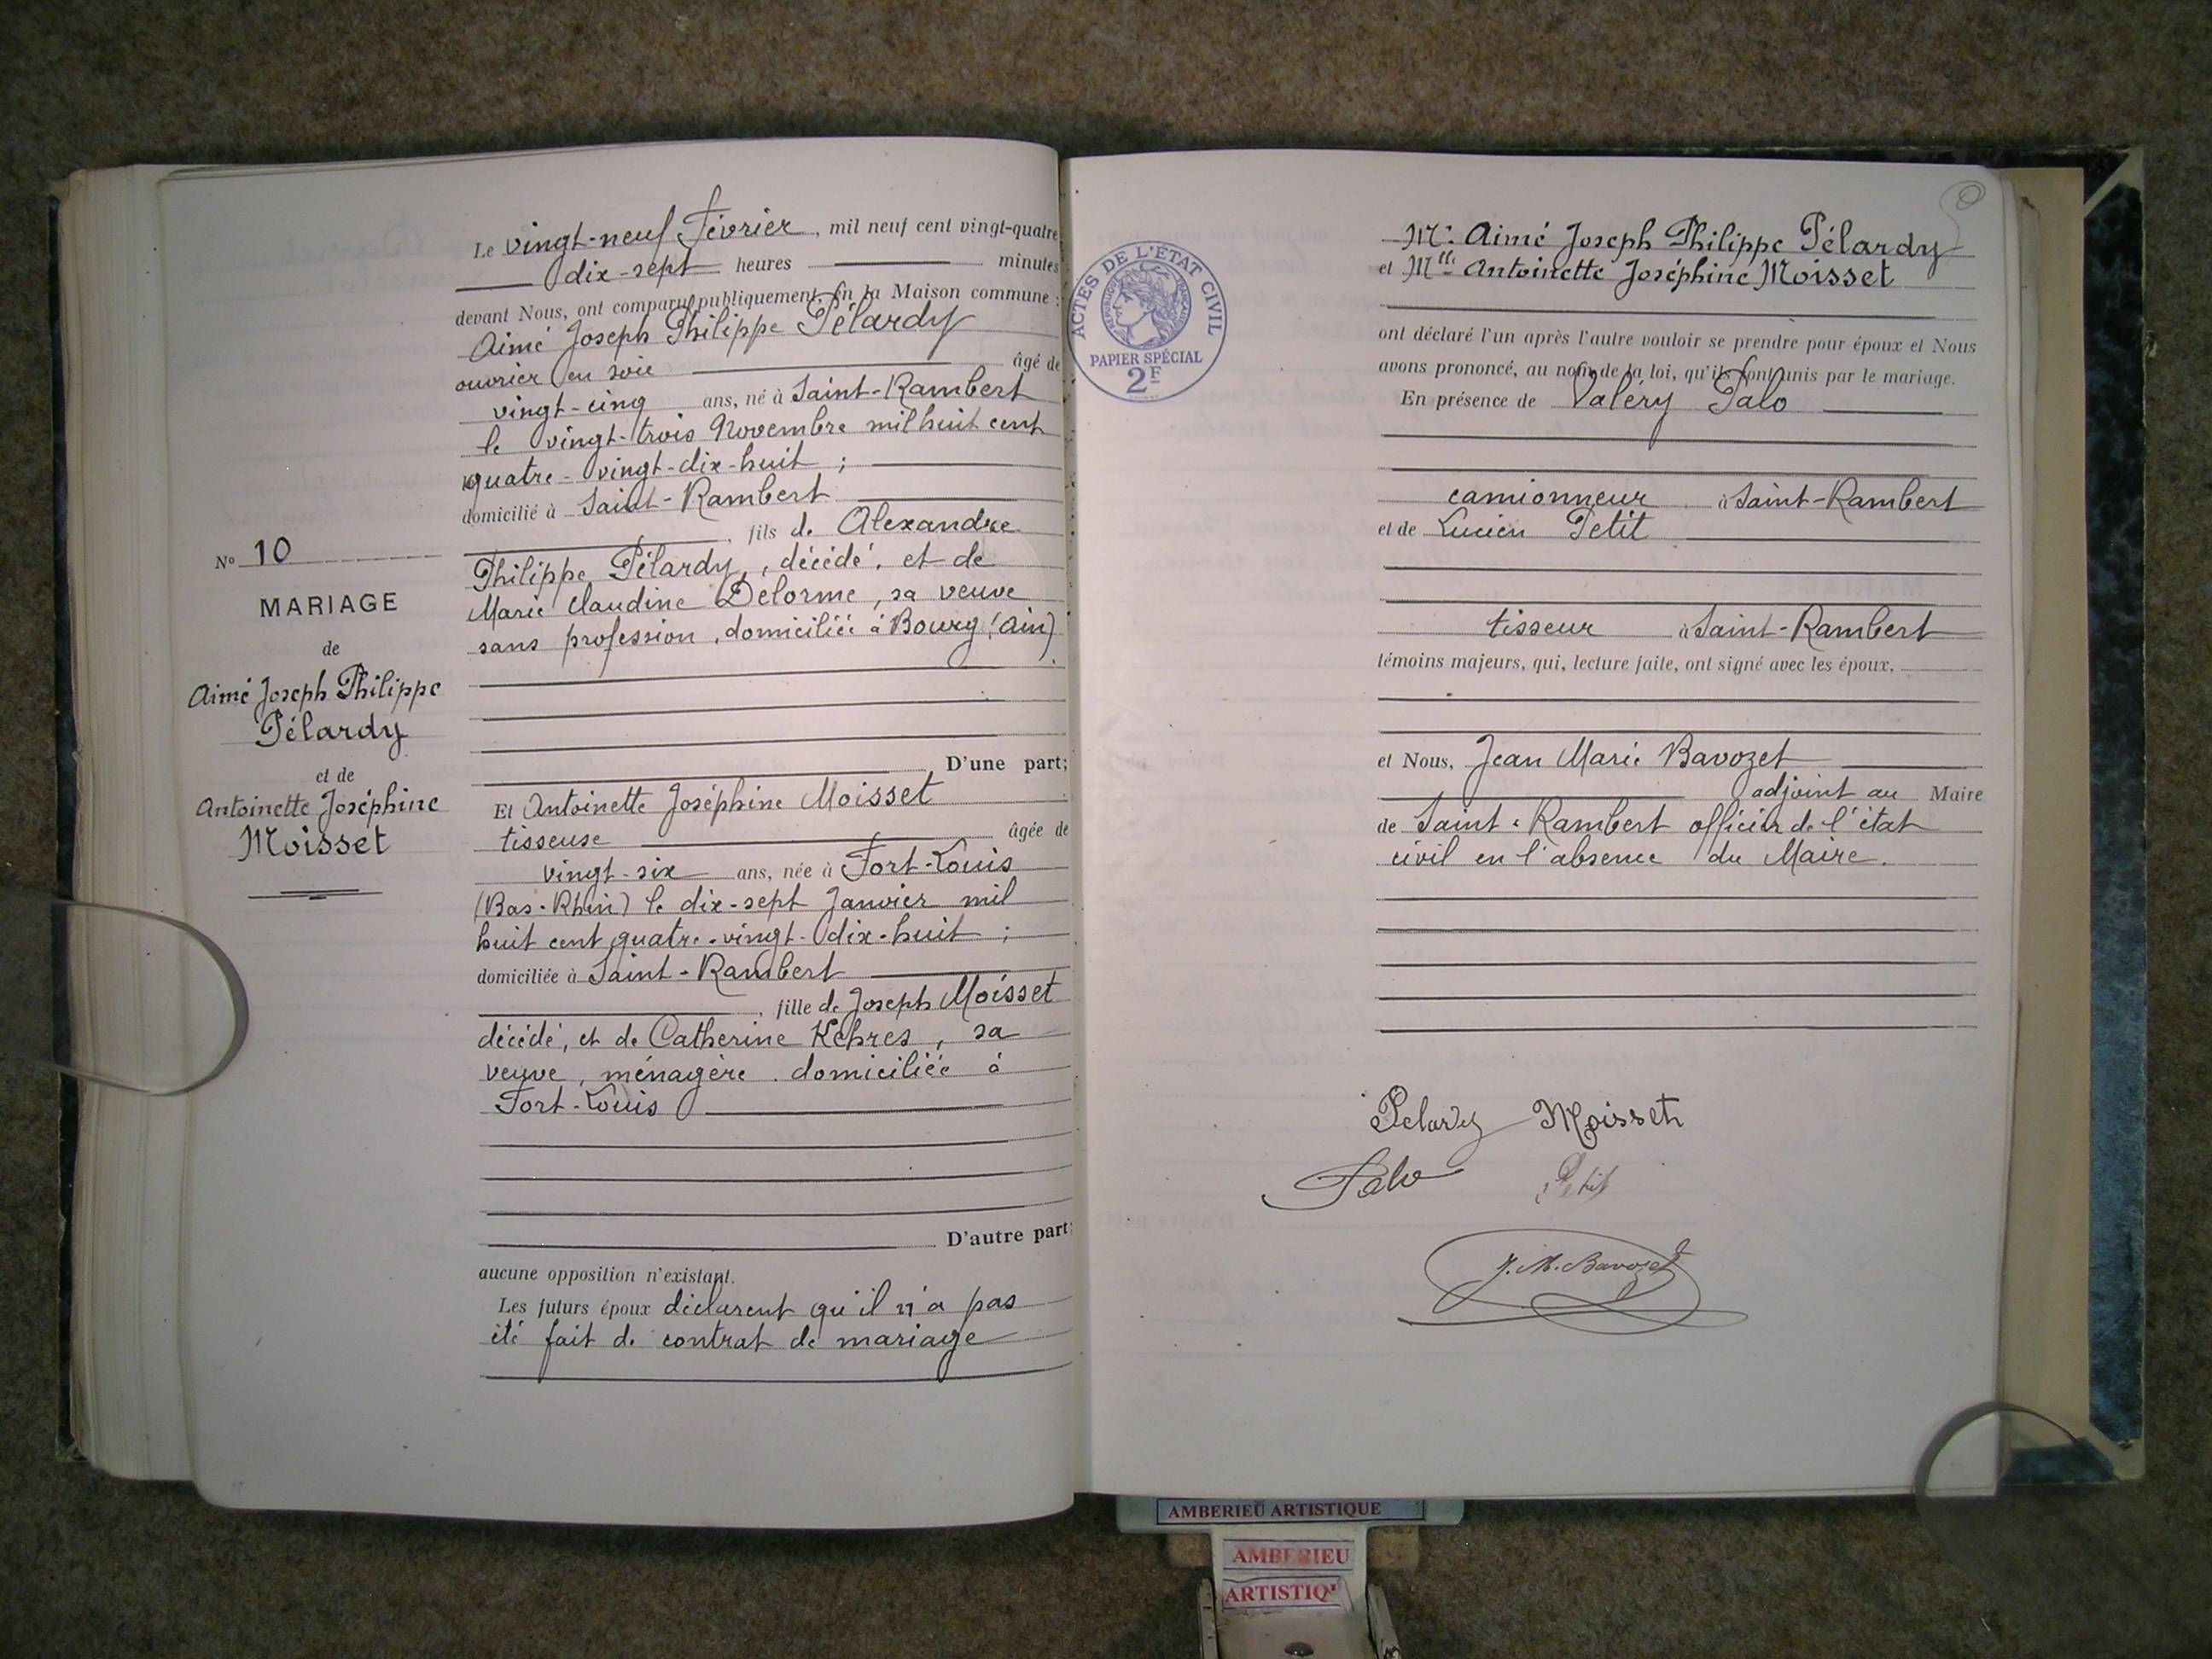 N° 10
MARIAGE
de
Aimé Joseph Philippe
Pélardy
et de
Antoinette Joséphine
Moisset
Le vingt-neuf Février, mil neuf cent vingt-quatre
dix-sept heures minutes
devant Nous, ont comparu publiquement, en la Maison commune :
Aimé Joseph Philippe Pélardy
ouvrier en soie âgé de
vingt-cinq ans, né à Saint-Rambert
le vingt-trois Novembre mil huit cent
quatre-vingt-dix-huit ;
domicilié à Saint-Rambert
, fils de Alexandre
Philippe Pélardy, décédé, et de
Marie Claudine Delorme, sa veuve
sans profession, domiciliée à Bourg (Ain).
D'une part;
Et Antoinette Joséphine Moisset
tisseuse âgée de
vingt-six ans, née à Fort-Louis
(Bas-Rhin) le dix-sept Janvier mil
huit cent quatre-vingt-dix-huit ;
domiciliée à Saint-Rambert
, fille de Joseph Moisset
décédé, et de Catherine Kehres, sa
veuve, ménagère domiciliée à
Fort-Louis
D'autre part;
aucune opposition n'existant.
Les futurs époux déclarent qu'il n'a pas
été fait de contrat de mariage
ACTES DE L'ÉTAT CIVIL
RÉPUBLIQUE FRANÇAISE
PAPIER SPÉCIAL
2F
Mr. Aimé Joseph Philippe Pélardy
et Mlle Antoinette Joséphine Moisset
ont déclaré l'un après l'autre vouloir se prendre pour époux et Nous
avons prononcé, au nom de la loi, qu'ils sont unis par le mariage.
En présence de Valéry Palo
camionneur à Saint-Rambert
et de Lucien Petit
tisseur à Saint-Rambert
témoins majeurs, qui, lecture faite, ont signé avec les époux,
et Nous, Jean Marie Bavozet
adjoint au Maire
de Saint-Rambert officier de l'état
civil en l'absence du Maire.
Pelardy Moisset
Palo Petit
J. M. Bavozet
AMBERIEU ARTISTIQUE
AMBERIEU
ARTISTIQ